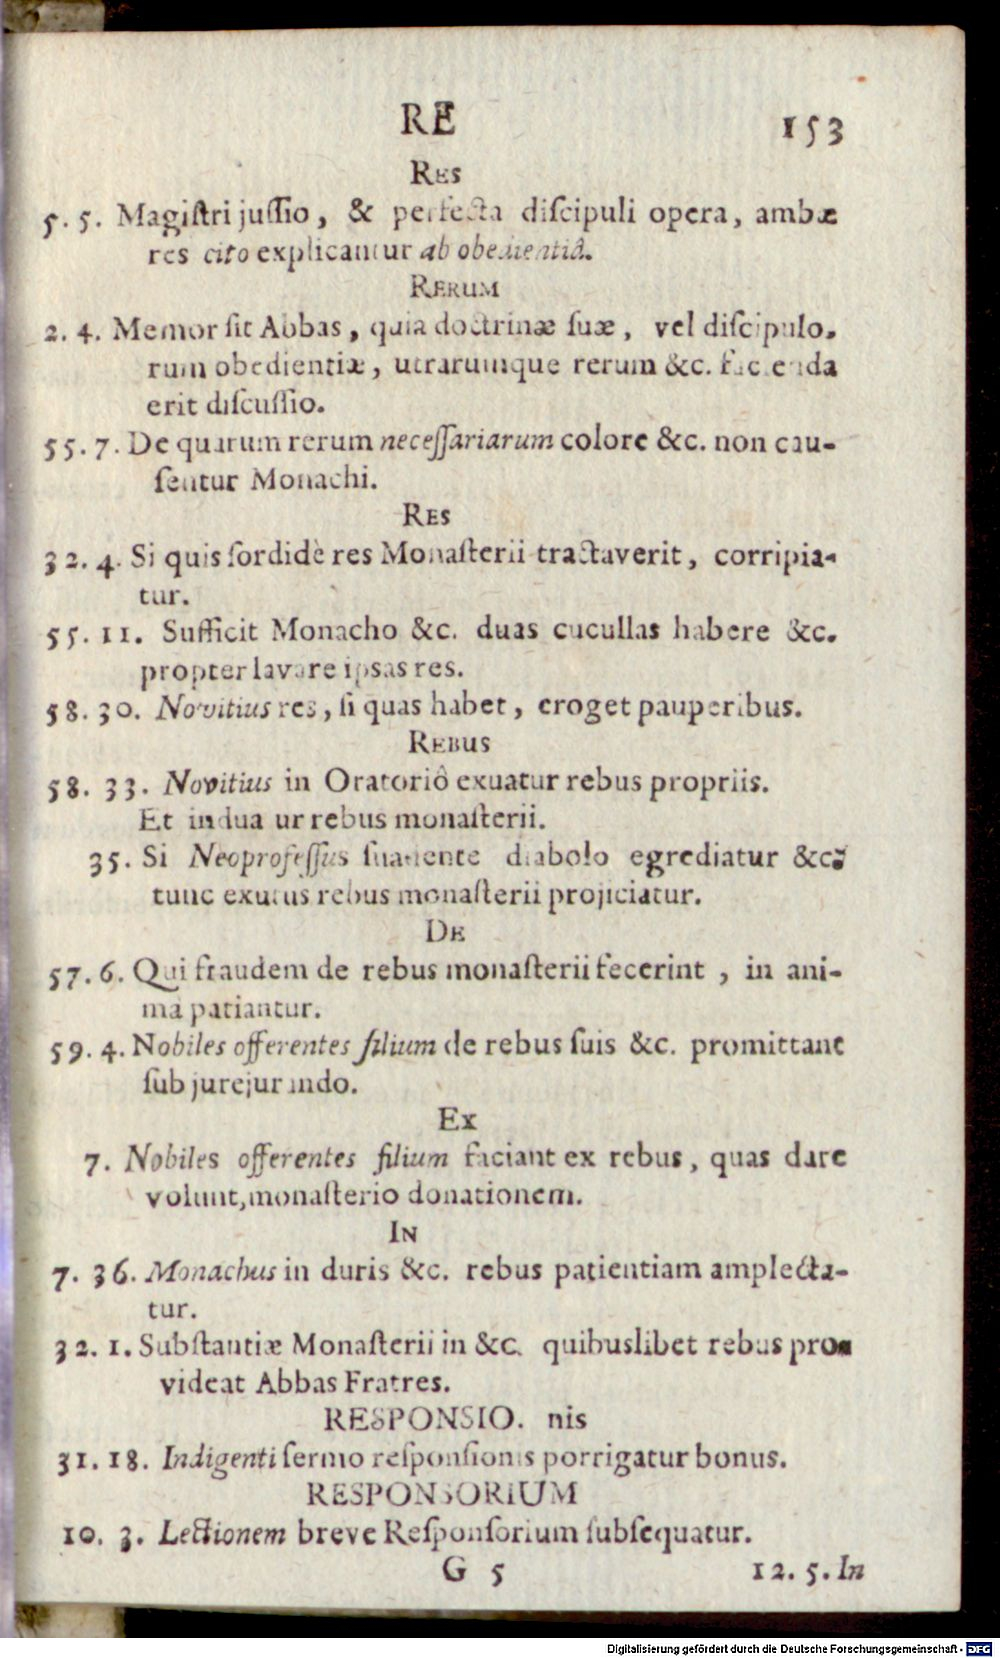 RE 153
Res
5. 5. Magiſtri juſſio, & perfecta diſcipuli opera, ambæ
res cito explicantur ab obedientiâ.
Rerum
2. 4. Memor ſit Abbas, quia doctrinæ ſuæ, vel diſcipulo-
rum obedientiæ, utrarumque rerum &c. facienda
erit diſcuſſio.
55. 7. De quarum rerum neceſſariarum colore &c. non cau-
ſentur Monachi.
Res
32. 4. Si quis ſordidè res Monaſterii tractaverit, corripia-
tur.
55. 11. Sufficit Monacho &c. duas cucullas habere &c.
propter lavare ipsas res.
58. 30. Novitius res, ſi quas habet, eroget pauperibus.
Rebus
58. 33. Novitius in Oratoriô exuatur rebus propriis.
Et induatur rebus monaſterii.
35. Si Neoprofeſſus ſuadente diabolo egrediatur &c.
tunc exutus rebus monaſterii projiciatur.
De
57. 6. Qui fraudem de rebus monaſterii fecerint, in ani-
ma patiantur.
59. 4. Nobiles offerentes filium de rebus ſuis &c. promittant
ſub jurejurando.
Ex
7. Nobiles offerentes filium faciant ex rebus, quas dare
volunt, monaſterio donationem.
In
7. 36. Monachus in duris &c. rebus patientiam amplecta-
tur.
32. 1. Subſtantiæ Monaſterii in &c. quibuslibet rebus pro-
videat Abbas Fratres.
RESPONSIO. nis
31. 18. Indigenti ſermo reſponſionis porrigatur bonus.
RESPONSORIUM
10. 3. Lectionem breve Reſponſorium ſubſequatur.
G 5 12. 5. In
Digitalisierung gefördert durch die Deutsche Forschungsgemeinschaft - DFG